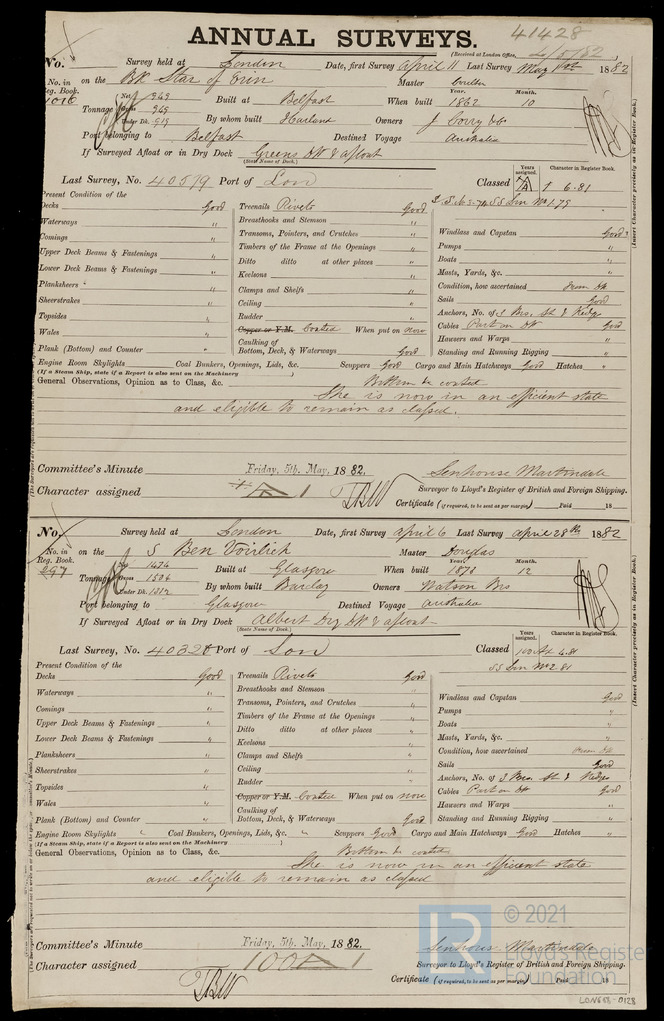 41428
ANNUAL SURVEYS.
(Received at London Office,
No. Survey held at London Date, first Survey April 11 Last Survey May 1st 1882
No. in Reg. Book. on the Bk Star of Erin Master
Tonnage Net 949 Gross 949 Under Dk. 919 Built at Belfast When built Year. 1862 Month. 10
By whom built Harland Owners J Corry & Co
Port belonging to Belfast Destined Voyage Australia
If Surveyed Afloat or in Dry Dock Greens DK & afloat
(State Name of Dock.)
Last Survey, No. 40579 Port of Lon Classed Years assigned. A Character in Register Book. 1 6.81
Present Condition of the
Decks Good Treenails Rivets Good
Waterways " Breasthooks and Stemson " Windlass and Capstan Good
Comings " Transoms, Pointers, and Crutches " Pumps "
Upper Deck Beams & Fastenings " Timbers of the Frame at the Openings " Boats "
Lower Deck Beams & Fastenings " Ditto ditto at other places " Masts, Yards, &c. "
Planksheers " Keelsons " Condition, how ascertained from Dk
Sheerstrakes " Clamps and Shelfs " Sails Good
Topsides " Ceiling " Anchors, No. of
Wales " Rudder " Cables Part on DK Good
Plank (Bottom) and Counter " Copper or Y.M. Coated When put on now Hawsers and Warps "
Caulking of Bottom, Deck, & Waterways Good Standing and Running Rigging "
Engine Room Skylights Coal Bunkers, Openings, Lids, &c. Scuppers Good Cargo and Main Hatchways Good Hatches "
(If a Steam Ship, state if a Report is also sent on the Machinery )
General Observations, Opinion as to Class, &c. Bottom coated
She is now in an efficient state
and eligible to remain as classed.
Committee's Minute Friday, 5th May, 1882.
Character assigned A 1
Senhouse Martindale
Surveyor to Lloyd's Register of British and Foreign Shipping.
Certificate (if required, to be sent as per margin) Paid 18
(Insert Character precisely as in Register Book.)
No. Survey held at London Date, first Survey April 6 Last Survey April 28th 1882
No. in Reg. Book. 297 on the S Ben Voirlich Master Douglas
Tonnage Net 1474 Gross 1504 Under Dk. 1312 Built at Glasgow When built Year. Month. 12
By whom built Barclay Owners Watson Bros
Port belonging to Glasgow Destined Voyage Australia
If Surveyed Afloat or in Dry Dock Albert Dry DK & afloat
(State Name of Dock.)
Last Survey, No. Port of Lon Classed Years assigned. 100 A1 Character in Register Book. 6.81
SS Lon No 2 81
Present Condition of the
Decks Good Treenails Rivets Good
Waterways " Breasthooks and Stemson " Windlass and Capstan Good
Comings " Transoms, Pointers, and Crutches " Pumps "
Upper Deck Beams & Fastenings " Timbers of the Frame at the Openings " Boats "
Lower Deck Beams & Fastenings " Ditto ditto at other places " Masts, Yards, &c. "
Planksheers " Keelsons " Condition, how ascertained from Dk
Sheerstrakes " Clamps and Shelfs " Sails Good
Topsides " Ceiling " Anchors, No. of
Wales " Rudder " Cables Part on DK Good
Plank (Bottom) and Counter " Copper or Y.M. Coated When put on now Hawsers and Warps "
Caulking of Bottom, Deck, & Waterways Good Standing and Running Rigging "
Engine Room Skylights " Coal Bunkers, Openings, Lids, &c. " Scuppers Good Cargo and Main Hatchways Good Hatches "
(If a Steam Ship, state if a Report is also sent on the Machinery )
General Observations, Opinion as to Class, &c. Bottom coated
She is now in an efficient state
and eligible to remain as classed
Committee's Minute Friday, 5th May, 1882.
Character assigned 100 A 1
Senhouse Martindale
Surveyor to Lloyd's Register of British and Foreign Shipping.
Certificate (if required, to be sent as per margin) Paid 18
(Insert Character precisely as in Register Book.)
LR © 2021
Lloyd's Register
Foundation
LON688-0128